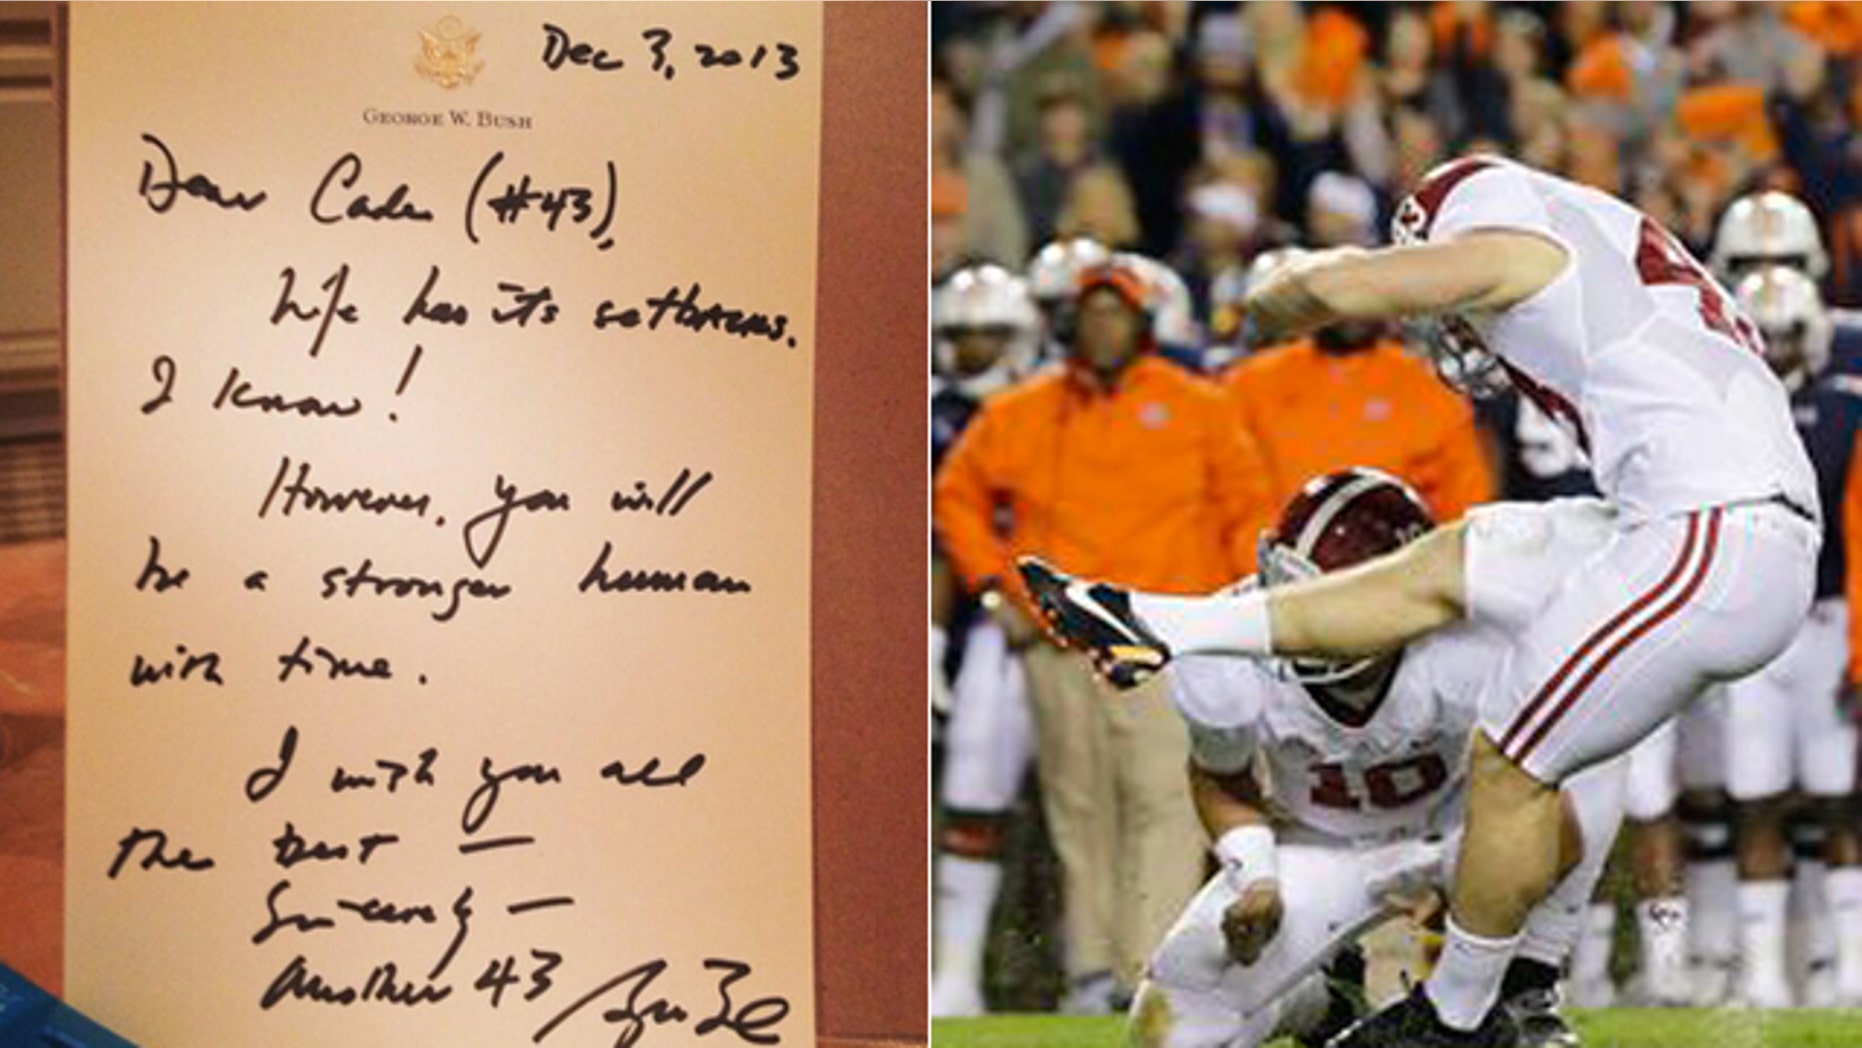 Dec 3, 2013
GEORGE W. BUSH
Dear Cade (#43),
Life has its setbacks.
I know!
However, you will
be a stronger human
with time.
I wish you all
the best —
Sincerely —
Another 43
10